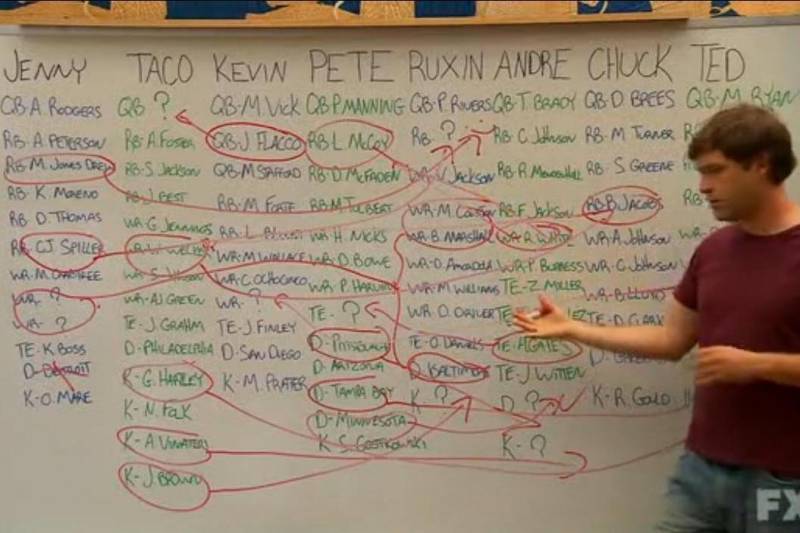 JENNY
QB-A. RODGERS
RB-A. PETERSON
RB-M. JONES DREW
RB-K. MORENO
RB D. THOMAS
RB-CJ SPILLER
WR-M. CRABTREE
WR-?
WR-?
TE-K BOSS
D-DETROIT
K-O. MARE
TACO
QB ?
RB-A. FOSTER
RB-S. JACKSON
RB-J. BEST
WR-G. JENNINGS
WR-AJ GREEN
TE-J. GRAHM
D-PHILADELPHIA
K-G. HARTLEY
K-N. FOLK
K-A. VINATERI
K-J. BROWN
KEVIN
QB-M. VICK
QB-J. FLACCO
QB-M STAFFORD
RB-M. FORTE
RB-L.
WR-M. WALLACE
WR-C. OCHOCINCO
WR-?
TE-J. FINLEY
D-SAN DIEGO
K-M. PRATER
PETE
QB P. MANNING
RB-L. MCCOY
RB-D. MCFADEN
RB M. TOLBERT
WR-H. NICKS
WR-D. BOWE
WR-P. HARVIN
TE-?
D-PITTSBURGH
D-ARIZONA
D-TAMPA BAY
D-MINNESOTA
K S. GOSTKOWSKI
RUXIN
QB-P. RIVERS
RB-?
WR-V. JACKSON
WR-M. COLSTON
WR-B. MARSHALL
WR-D. AMENDOLA
WR-M WILLIAMS
WR-D. DRIVER
TE-O. DANIELS
D-BALTIMORE
K ?
ANDRE
QB-T. BRADY
RB-C. JOHNSON
RB-R. MENDENHALL
RB-F. JACKSON
WR-R. WHITE
WR-P. BURRESS
TE-Z. MILLER
TE-A. GATES
TE-J. WITTEN
D ?
K-?
CHUCK
QB-D. BREES
RB-M. TURNER
RB-S. GREENE
RB-B. JACOBS
WR-A. JOHNSON
WR-C. JOHNSON
WR-B. LLOYD
TE-D. CLARK
K-R. GOULD
TED
QB-M. RYAN
FX